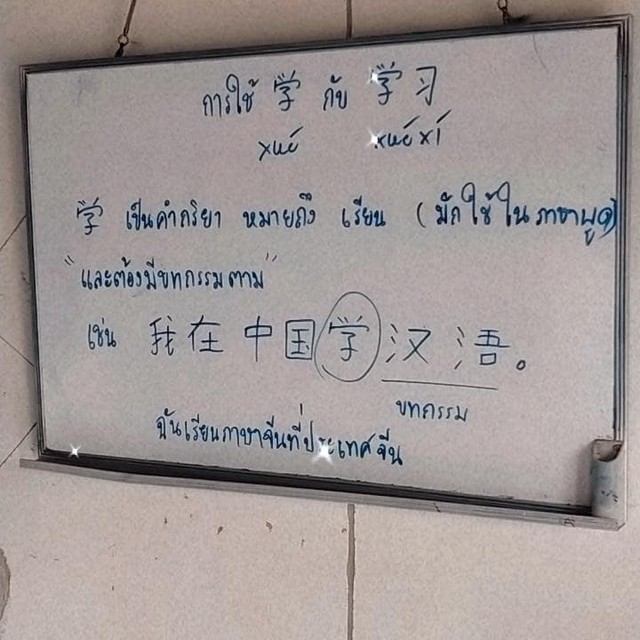 การใช้ 学 กับ 学习
xué xuéxí
学 เป็นคำกริยา หมายถึง เรียน (มักใช้ในภาษาพูด)
"และต้องมีบทกรรมตาม"
เช่น 我在中国学汉语。
บทกรรม
ฉันเรียนภาษาจีนที่ประเทศจีน